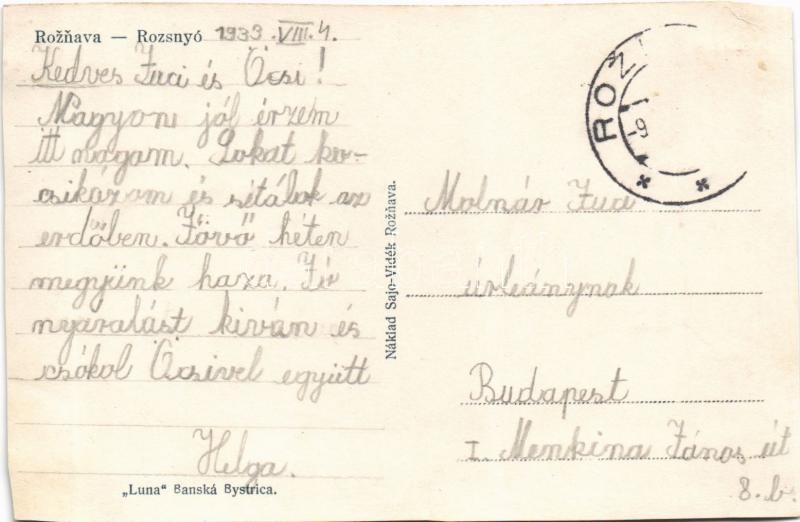 Rožňava — Rozsnyó 1933.VIII.4.
Kedves Zuci és Öcsi!
Nagyon jól érzem
itt magam. Sokat ko-
csikázom és sétálok az
erdőben. Jövő héten
megyünk haza. Jó
nyaralást kiván és
csókol Öcsivel együtt
Helga.
„Luna“ Banská Bystrica.
Náklad Sajo-Vidék Rožňava.
ROŽ
Molnár Zuci
úrleánynak
Budapest
I. Menkina János út
8. b.